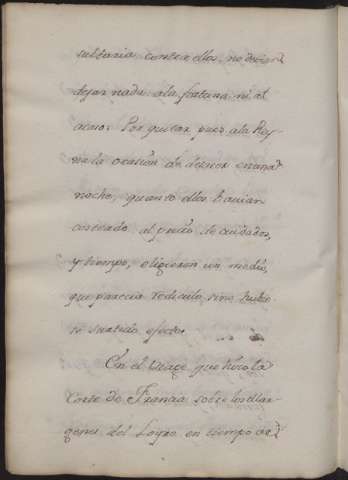 sultaria contra ellos, no devian
dejar nada a la fortuna ni al
acaso: Por quitar pues a la Rey-
na la ocasion de deshacer en una
noche, quanto ellos havian
costeado al precio de cuidados,
y tiempo, eligieron un medio,
que pareceria rediculo sino hubie-
se surtido efecto.
En el Viage que hizo la
Corte de Francia sobre los Mar-
genes del Loyre en tiempo de